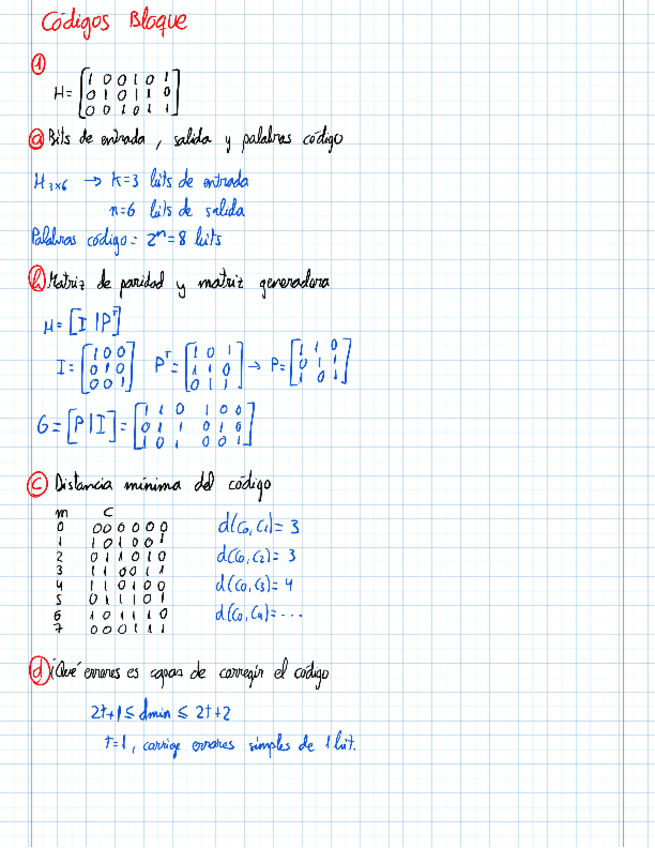 Códigos Bloque
①
H = [1 0 0 1 0 1
0 1 0 1 1 0
0 0 1 0 1 1]
ⓐ Bits de entrada, salida y palabras código
H3x6 → k=3 bits de entrada
n=6 bits de salida
Palabras código = 2^n = 8 bits
ⓑ Matriz de paridad y matriz generadora
H = [I | P^T]
I = [1 0 0
0 1 0
0 0 1] P^T = [1 0 1
1 1 0
0 1 1] → P = [1 1 0
0 1 1
1 0 1]
G = [P | I] = [1 1 0 1 0 0
0 1 1 0 1 0
1 0 1 0 0 1]
ⓒ Distancia mínima del código
m C
0 0 0 0 0 0 0 d(C0, C1) = 3
1 1 0 1 0 0 1
2 0 1 1 0 1 0 d(C0, C2) = 3
3 1 1 0 0 1 1
4 1 1 0 1 0 0 d(C0, C3) = 4
5 0 1 1 1 0 1
6 1 0 1 1 1 0 d(C0, C4) = ...
7 0 0 0 1 1 1
ⓓ ¿Qué errores es capaz de corregir el código
2t+1 ≤ dmin ≤ 2t+2
t=1, corrige errores simples de 1 bit.